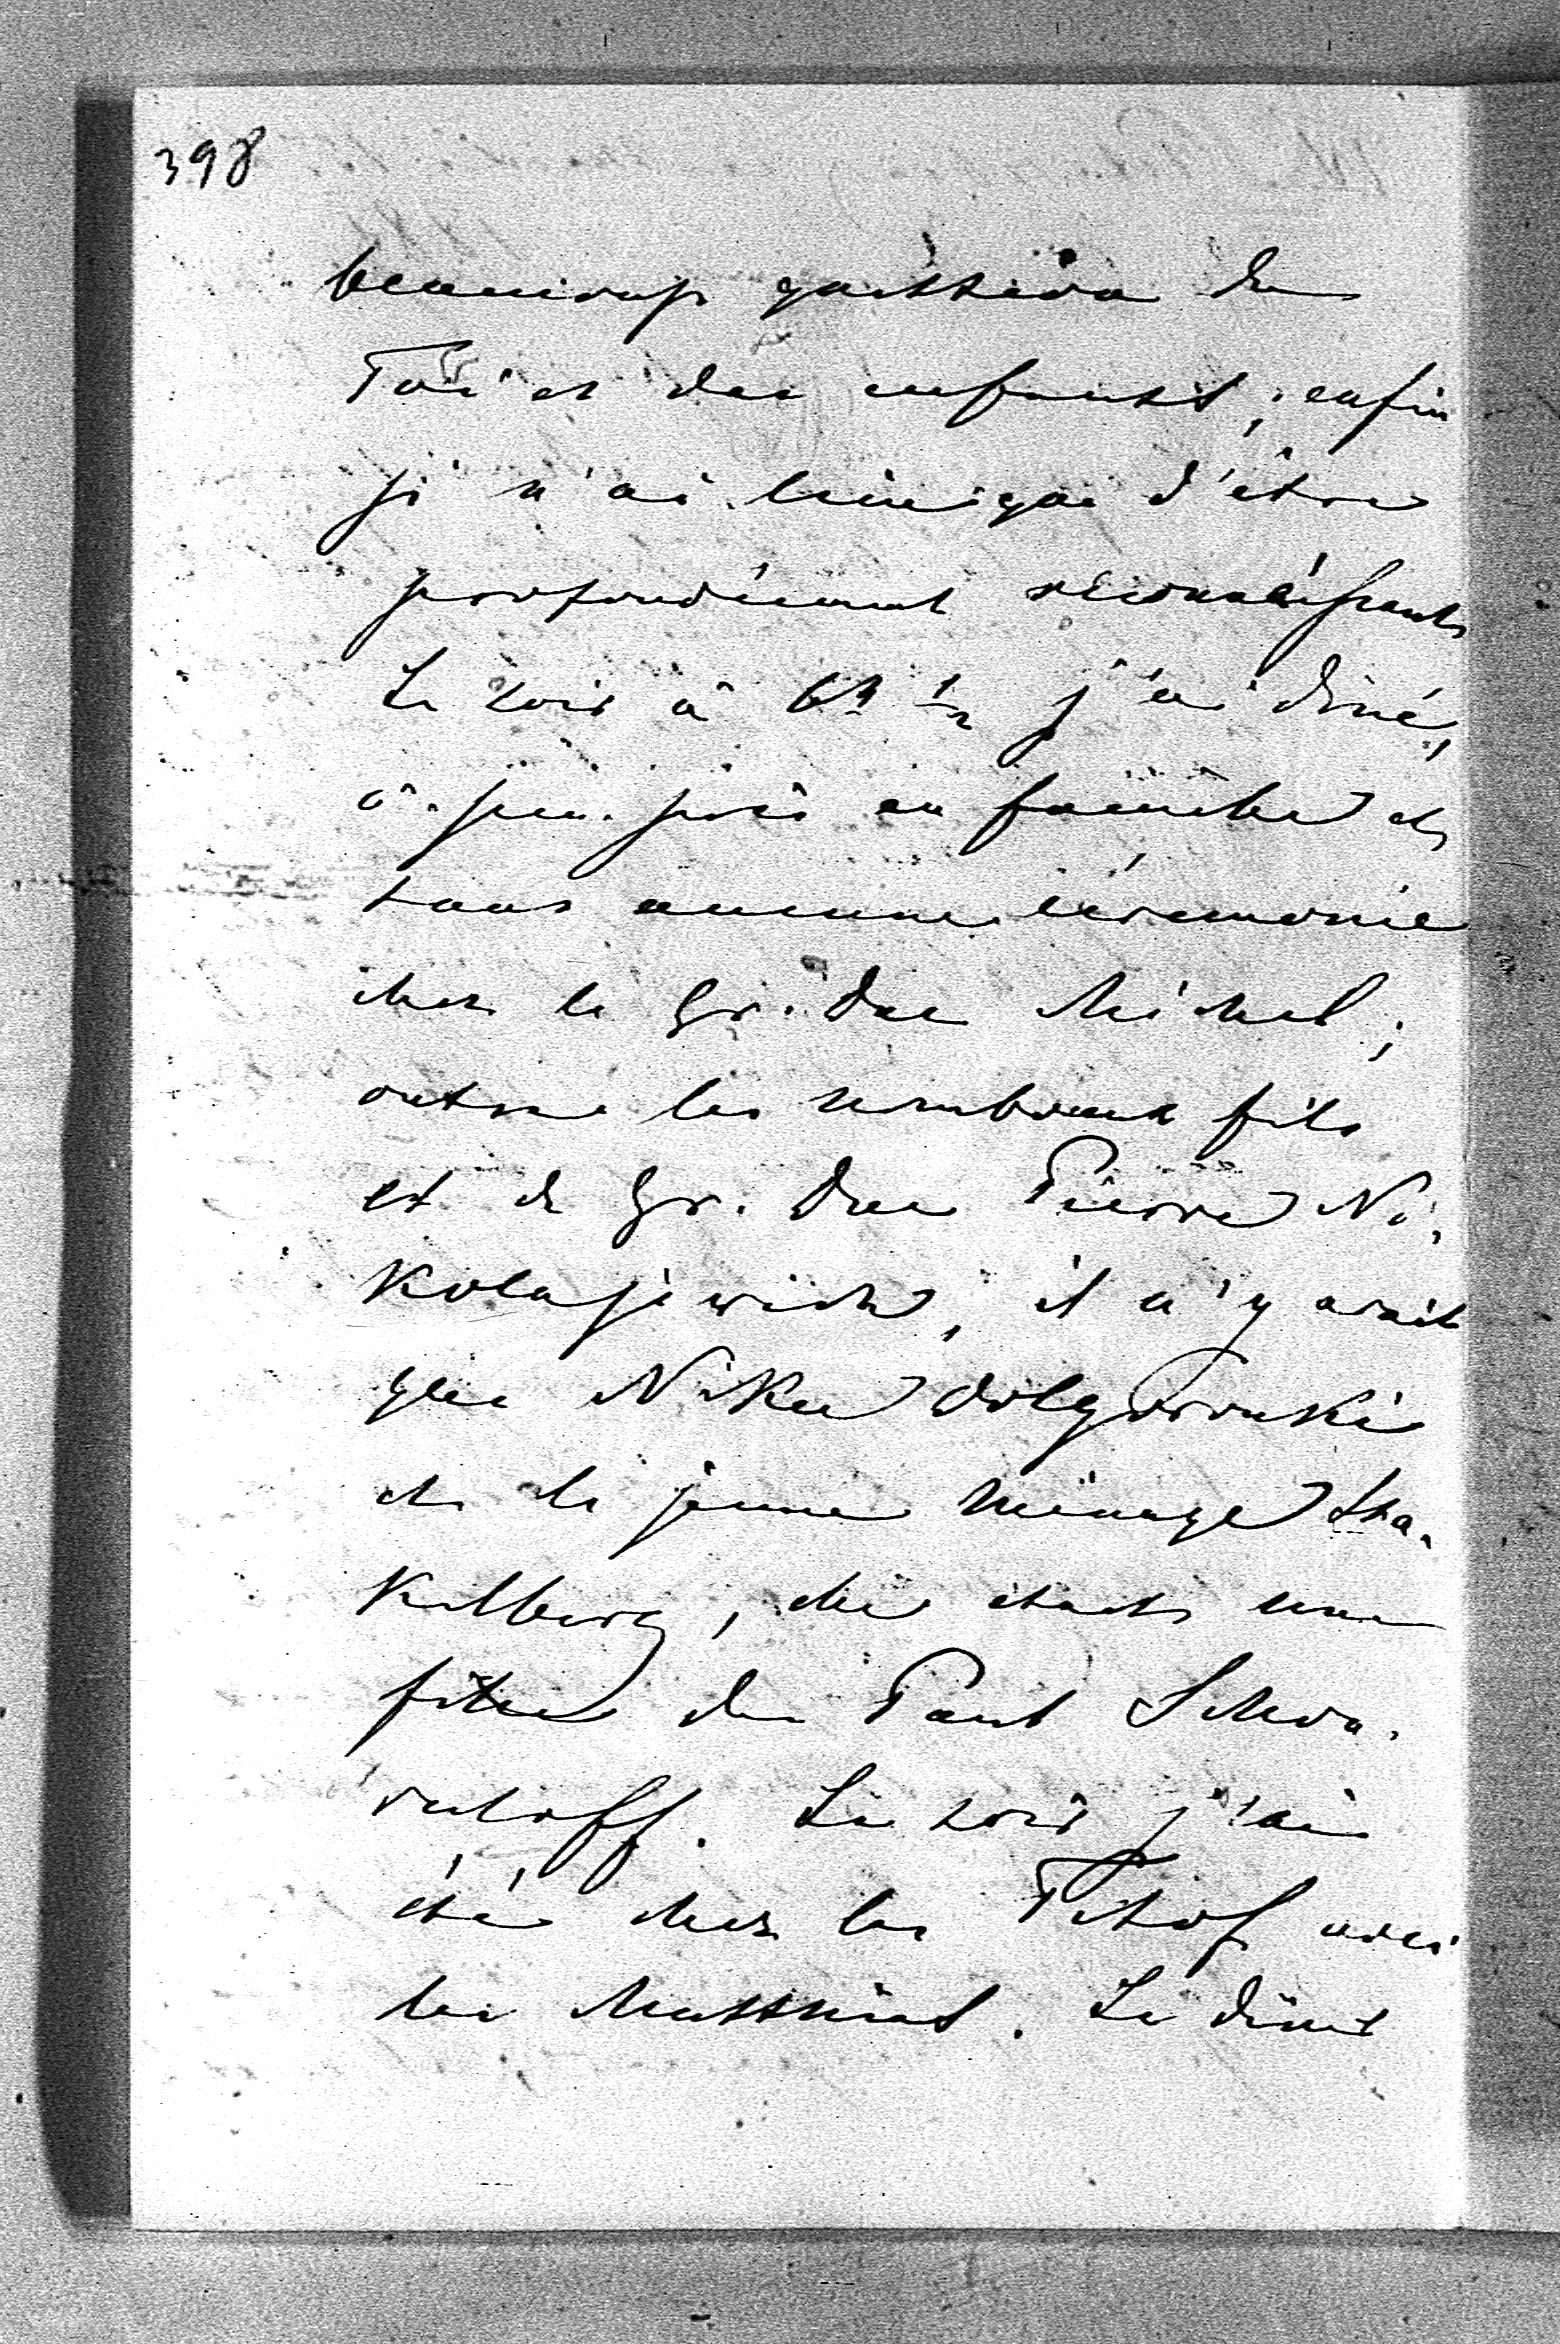 398
beaucoup question de
Toi et des enfants; enfin
je n'ai lieu que d'être
profondément reconnaissant
Le soir à 6h ½ j'ai diné,
à-peu-près en famille et
sans aucune cérémonie
chez le Gr. Duc Michel;
outre les nombreux fils
et le Gr. Duc Pierre Ni-
kolajewich, il n'y avait
que Niki Dolgorouki
et le jeune ménage Sta-
kelberg, elle étant une
fille de Paul Schou-
valoff. Le soir j'ai
été chez les Titof avec
les . Le diner